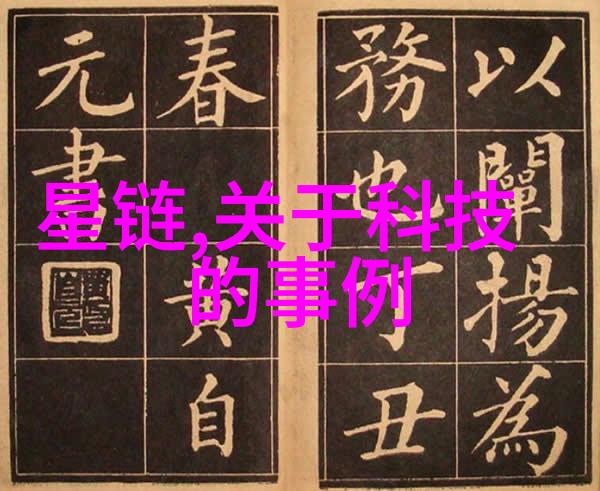 星链,关于科技
的事例
以闡揚為
務也丁丑
春黄自
元書